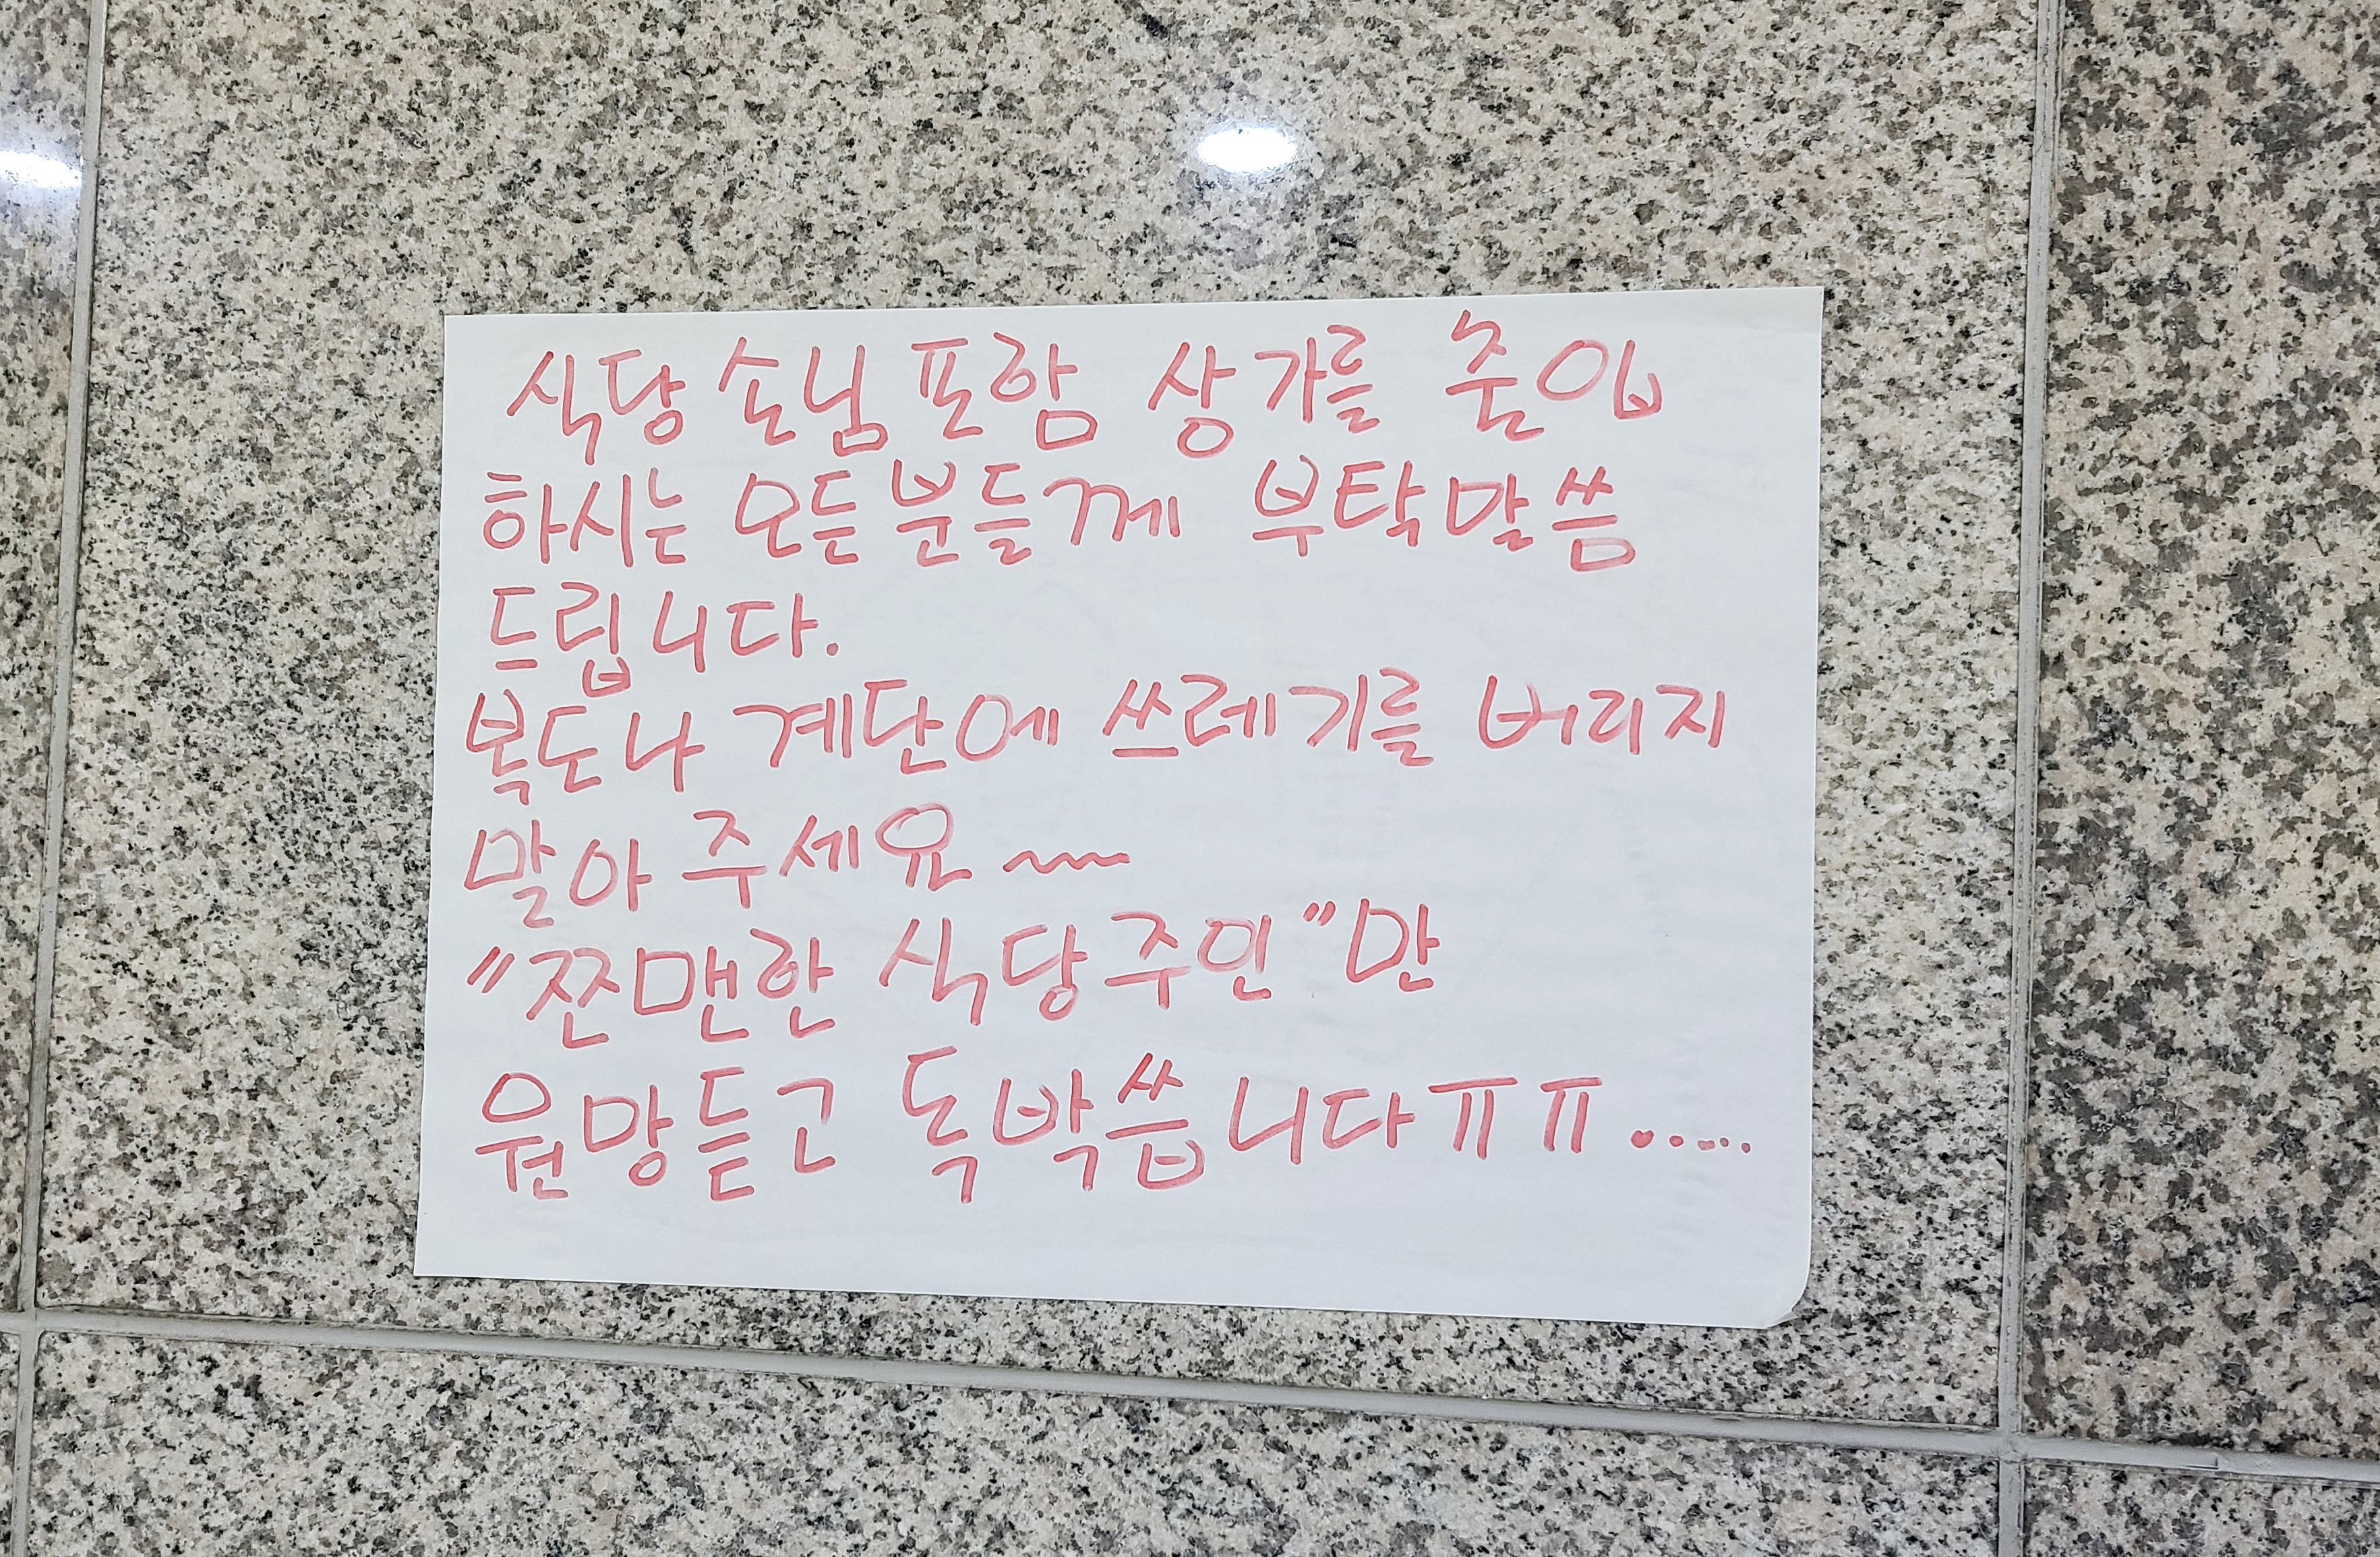 식당 손님 포함 상가를 출입
하시는 모든 분들께 부탁말씀
드립니다.
복도나 계단에 쓰레기를 버리지
말아 주세요~
"짠맨한 식당주인"만
원망듣고 독박씁니다ㅠㅠ.....